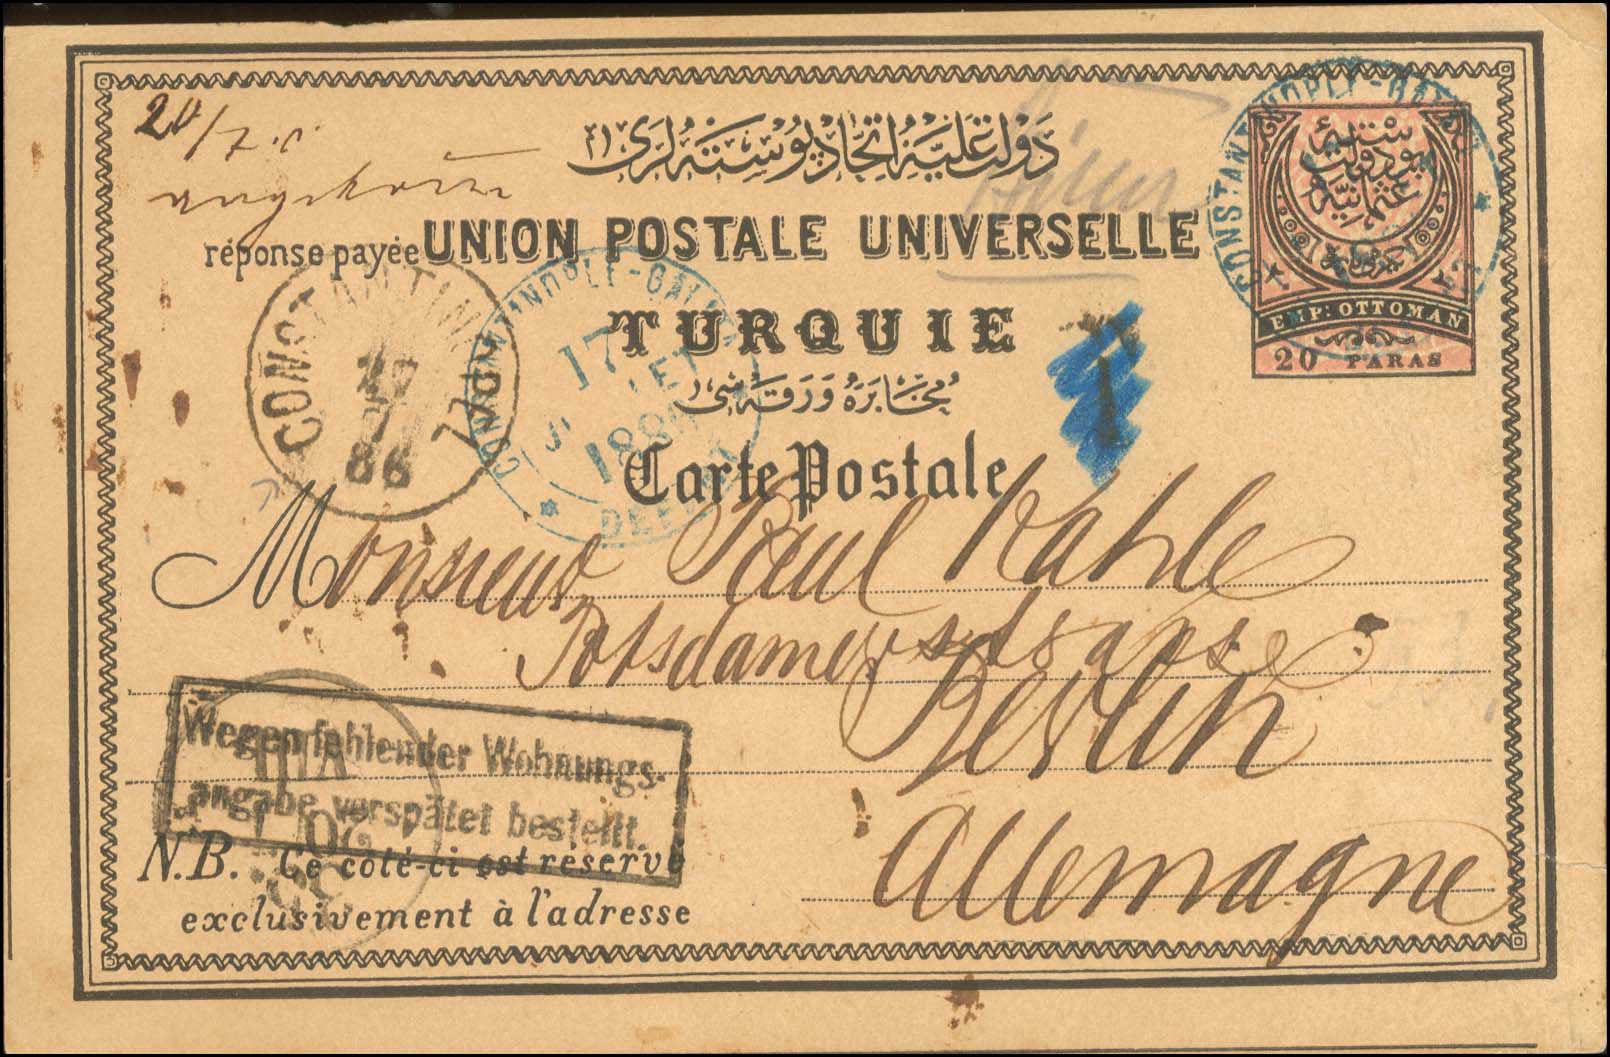 20/7.
دولت عليه اتحاد پوسته لرى
réponse payée UNION POSTALE UNIVERSELLE
TURQUIE
مخابره ورقه سى
Carte Postale
EMP: OTTOMAN
20 PARAS
CONSTANTINOPLE-GALATA
CONSTANTINOPEL
17
7
86
CONSTANTINOPLE-GALATA
17
JUILLET
188
DEPART
1
Monsieur Paul Kahle
Potsdamerstrasse
Berlin
Allemagne
Wegen fehlender Wohnungs-
angabe verspätet bestellt.
N.B. Ce côté-ci est réservé
exclusivement à l'adresse